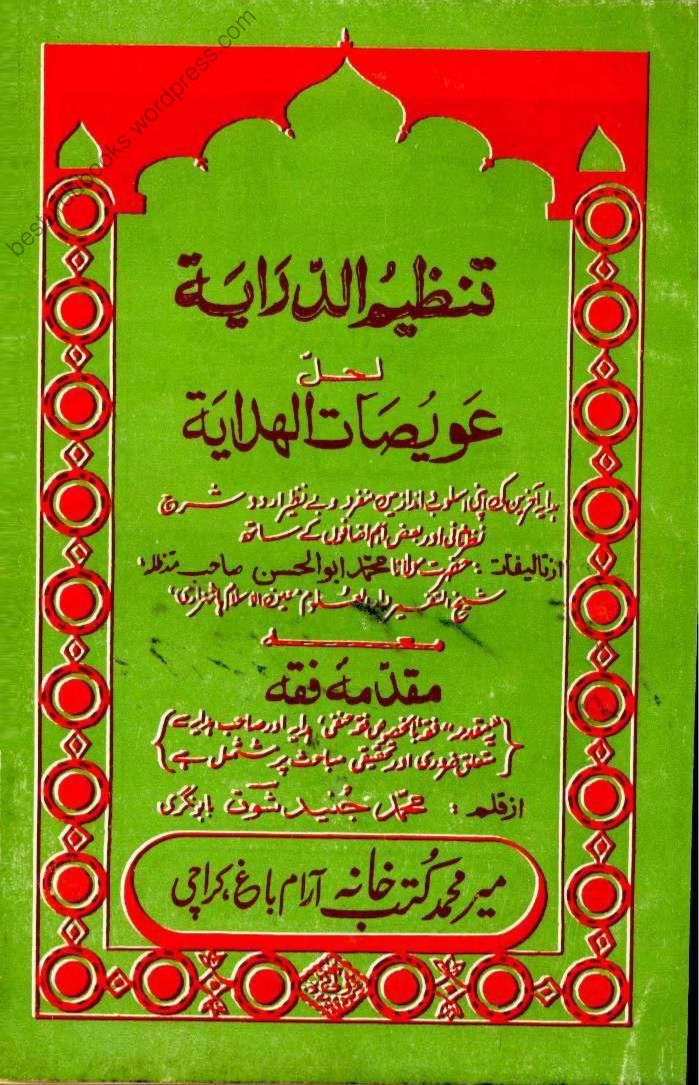 besturdubooks.wordpress.com
تنظیم الدّرَایَة
لحلّ
عَویُصَات الہدایة
ہدایہ آخرین کی اپنی اسلوب و انداز میں منفرد و بے نظیر اردو شرح
نظرثانی اور بعض اہم اضافوں کے ساتھ
از تالیفات : حضرت مولانا محمّد ابوالحسن صاحب مدظلہ
شیخ التفسیر دار العُلوم معین الاسلام ہاٹہزاری
معہ
مقدّمۂ فقہ
{ یہ مقدمہ، فقہ بالخصوص فقہ حنفی، ہدایہ اور صاحب ہدایہ سے
متعلق ضروری اور تحقیقی مباحث پر مشتمل ہے }
از قلم : محمّد جُنید شوق بابونگری
میر محمد کُتب خانہ آرام باغ، کراچی